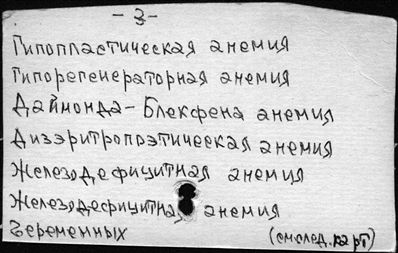 - 3 -
Гипопластическая анемия
Гипорегенераторная анемия
Даймонда-Блекфена анемия
Дизэритропоэтическая анемия
Железодефицитная анемия
Железодефицитная анемия
беременных (см. след. карт)